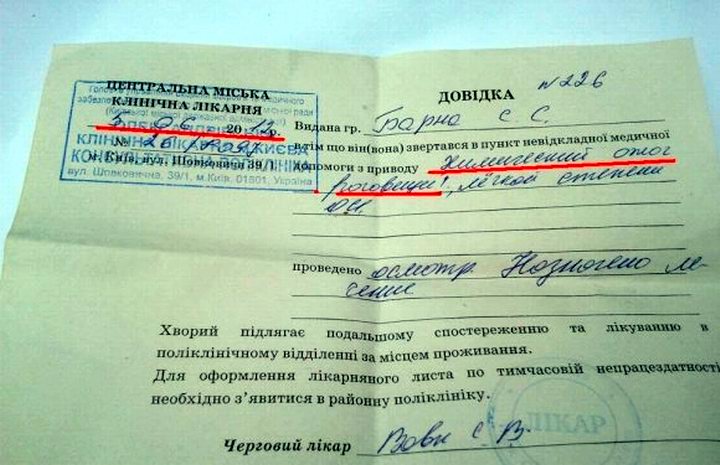 ЦЕНТРАЛЬНА МІСЬКА
КЛІНІЧНА ЛІКАРНЯ
5 06 2012 р.
№
м. Київ, вул. Шовковична 39/1
вул. Шовковична, 39/1, м.Київ, 01601, Україна
ДОВІДКА №226
Видана гр. Барна С. С.
в тім що він(вона) звертався в пункт невідкладної медичної
допомоги з приводу химический ожог
роговицы, лёгкой степени
OU
проведено осмотр. Назначено ле-
чение
Хворий підлягає подальшому спостереженню та лікуванню в
поліклінічному відділенні за місцем проживання.
Для оформлення лікарняного листа по тимчасовій непрацездатності
необхідно з’явитися в районну поліклініку.
Черговий лікар Вовк С В.
ЛІКАР